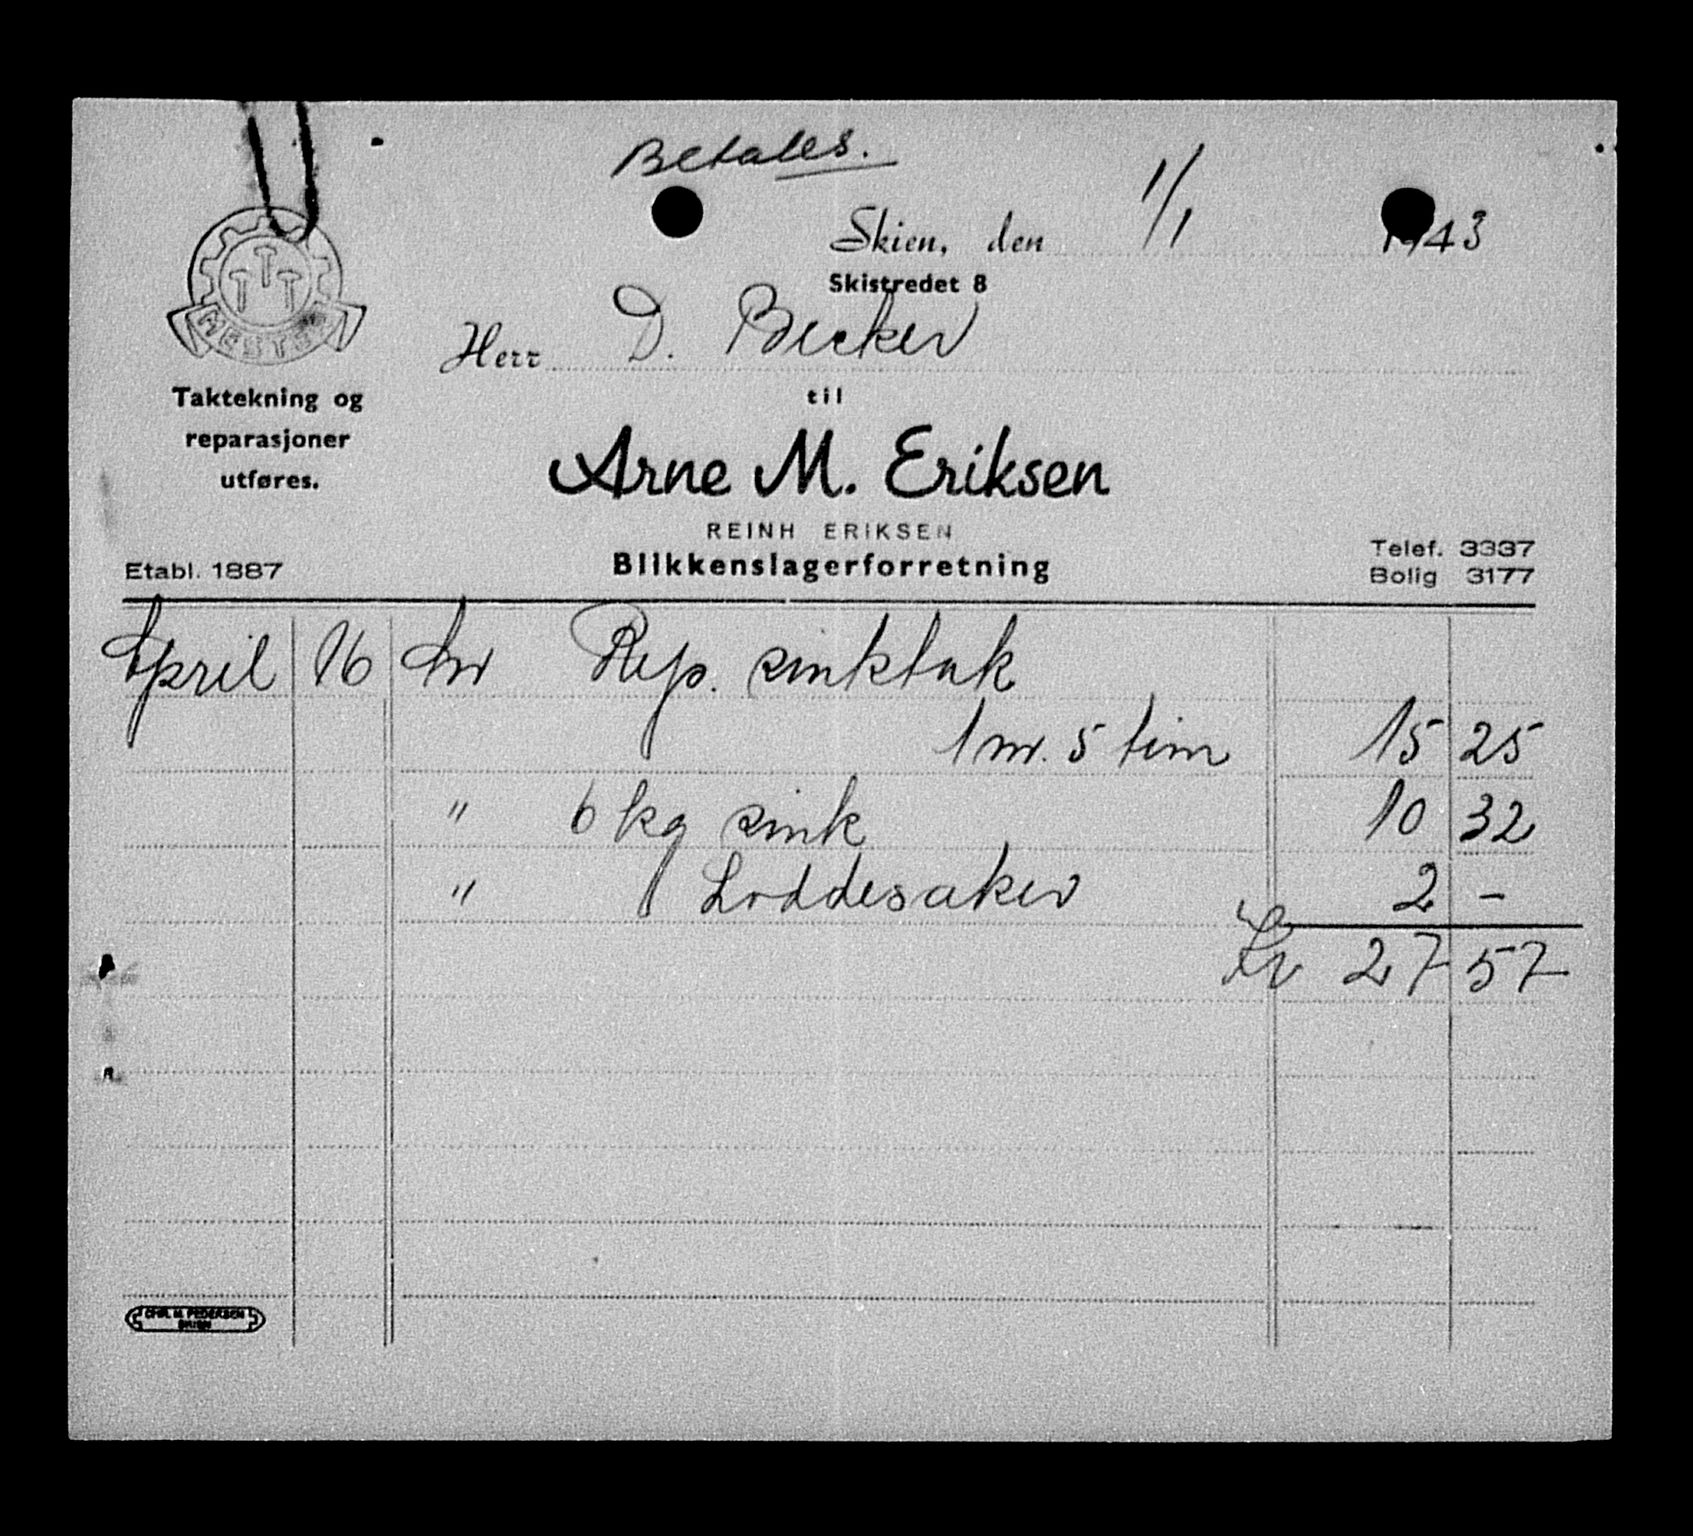 Betales.
Skien, den 1/1 1943
Skistredet 8
MESTER
Herr D. Becker
Taktekning og
reparasjoner
utføres.
til
Arne M. Eriksen
REINH ERIKSEN
Blikkenslagerforretning
Etabl. 1887
Telef. 3337
Bolig 3177
April 16 An Rep. sinktak
1 m. 5 tim 15 25
" 6 kg sink 10 32
" Loddesaker 2 -
Kr 27 57
CHR. M. PEDERSEN
SKIEN